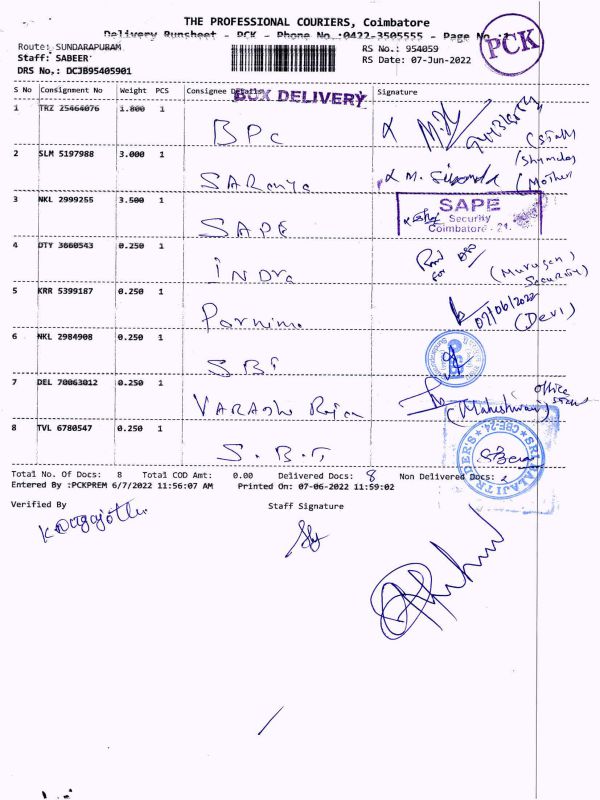 THE PROFESSIONAL COURIERS, Coimbatore
Delivery Runsheet - PCK - Phone No.:0422-3505555 - Page No.:
PCK
Route: SUNDARAPURAM
Staff: SABEER
DRS No,: DCJB95405901
RS No.: 954059
RS Date: 07-Jun-2022
S No Consignment No Weight PCS Consignee Details Signature
BOX DELIVERY
1 TRZ 25464076 1.800 1 BPC
2 SLM 5197988 3.000 1 SARanya (Mother
3 NKL 2999255 3.500 1 SAPE
SAPE
Security
Coimbatore - 21.
4 DTY 3660543 0.250 1 INDra (Murugan)
Security)
5 KRR 5399187 0.250 1 Pornima 07/06/2022
(Devi)
6 NKL 2984908 0.250 1 SBI
7 DEL 70063012 0.250 1 VARAShi Raja (Maheshwari) office
8 TVL 6780547 0.250 1 S.B.T
SRI BALAJI TRADER'S CBE-24
Total No. Of Docs: 8 Total COD Amt: 0.00 Delivered Docs: 8 Non Delivered Docs:
Entered By :PCKPREM 6/7/2022 11:56:07 AM Printed On: 07-06-2022 11:59:02
Verified By Staff Signature